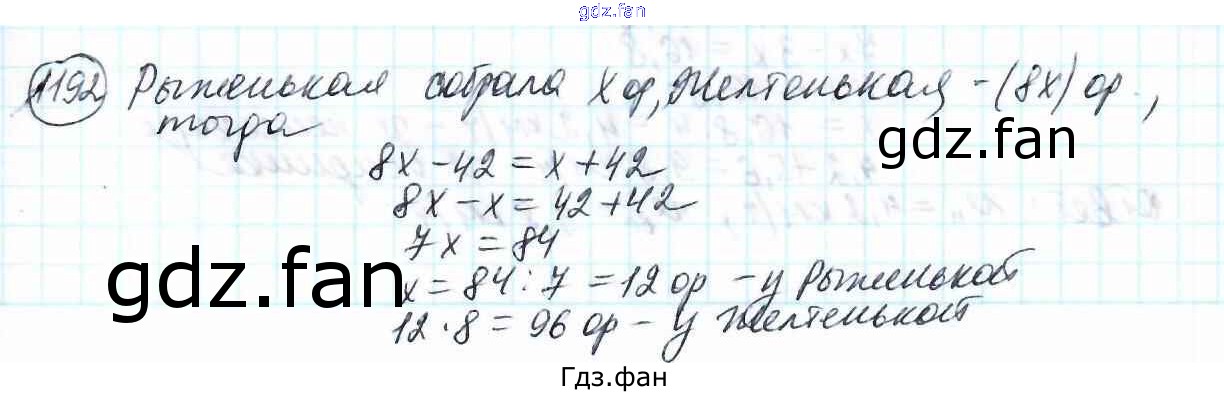 gdz.fan
1192 Рыженькая собрала x ор, Желтенькая, - (8x) ор.,
тогда
gdz.fan
8x - 42 = x + 42
8x - x = 42 + 42
7x = 84
gdz.fan
x = 84 : 7 = 12 ор - у Рыженькой
12 · 8 = 96 ор - у Желтенькой
Гдз.фан